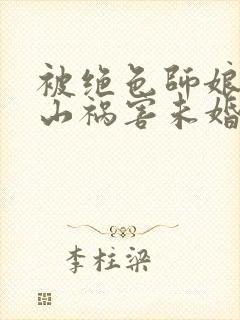 被绝色师娘
山祸害未婚
李柱梁